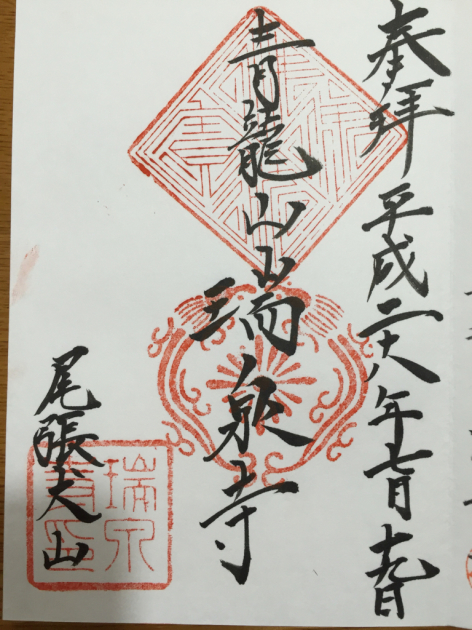 奉拝 平成二十八年七月十九日
青龍山瑞泉寺
尾張犬山
瑞泉
寺印